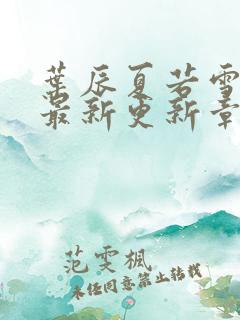 葉辰夏若雪
最新更新章
范雯楓
未經同意禁止转載